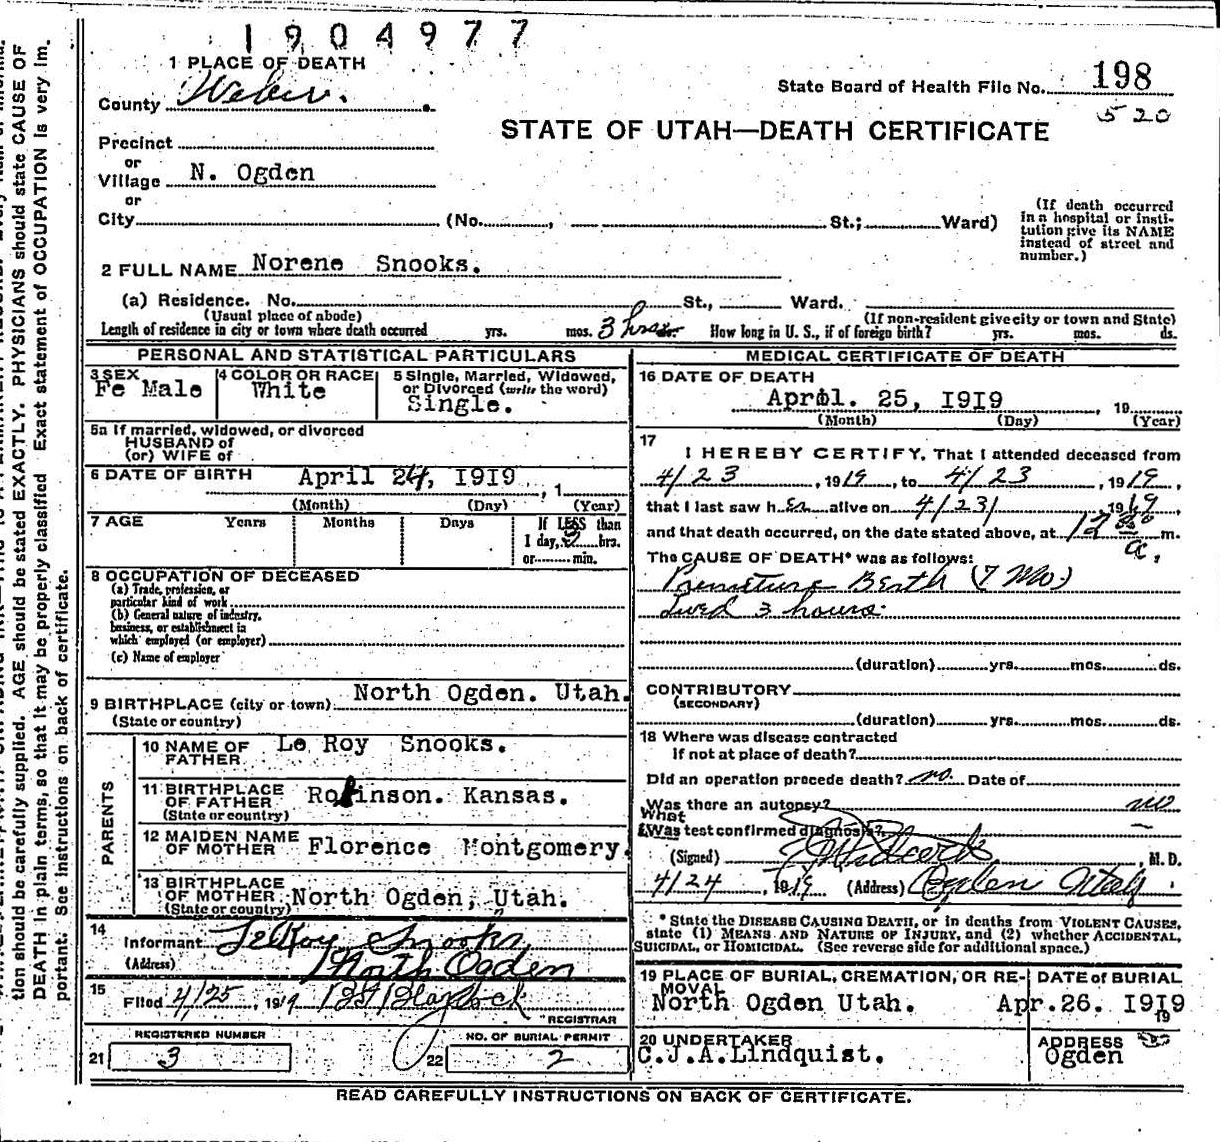 1904977
1 PLACE OF DEATH
County Weber.
State Board of Health File No. 198
520
STATE OF UTAH—DEATH CERTIFICATE
Precinct
or
Village N. Ogden
or
City (No. , St.; Ward)
(If death occurred in a hospital or insti-tution give its NAME instead of street and number.)
2 FULL NAME Norene Snooks.
(a) Residence. No. St., Ward.
(Usual place of abode) (If non-resident give city or town and State)
Length of residence in city or town where death occurred yrs. mos. 3 hrs. How long in U. S., if of foreign birth? yrs. mos. ds.
PERSONAL AND STATISTICAL PARTICULARS
3 SEX
Fe Male
4 COLOR OR RACE
White
5 Single, Married, Widowed, or Divorced (write the word)
Single.
5a If married, widowed, or divorced
HUSBAND of
(or) WIFE of
6 DATE OF BIRTH April 24, 1919 , 1
(Month) (Day) (Year)
7 AGE Years Months Days If LESS than
1 day, hrs.
or min.
8 OCCUPATION OF DECEASED
(a) Trade, profession, or
particular kind of work
(b) General nature of industry,
business, or establishment in
which employed (or employer)
(c) Name of employer
9 BIRTHPLACE (city or town) North Ogden. Utah.
(State or country)
PARENTS
10 NAME OF FATHER Le Roy Snooks.
11 BIRTHPLACE OF FATHER Robinson. Kansas.
(State or country)
12 MAIDEN NAME OF MOTHER Florence Montgomery.
13 BIRTHPLACE OF MOTHER North Ogden, Utah.
(State or country)
14
Informant LeRoy Snooks
(Address) North Ogden
15
Filed 4/25, 1919 Blaylock
REGISTRAR
REGISTERED NUMBER
21 3
NO. OF BURIAL PERMIT
22 2
MEDICAL CERTIFICATE OF DEATH
16 DATE OF DEATH
April. 25, 1919 , 19
(Month) (Day) (Year)
17
I HEREBY CERTIFY, That I attended deceased from
4/23, 1919, to 4/23, 1919,
that I last saw her alive on 4/23/ 1919,
and that death occurred, on the date stated above, at 12 a. m.
The CAUSE OF DEATH* was as follows:
Premature Berth (7 Mo)
Lived 3 hours.
(duration) yrs. mos. ds.
CONTRIBUTORY
(SECONDARY)
(duration) yrs. mos. ds.
18 Where was disease contracted
If not at place of death?
Did an operation precede death? no Date of
Was there an autopsy? no
What
Was test confirmed diagnosis? —
(Signed) , M. D.
4/24, 1919 (Address) Ogden Utah
* State the DISEASE CAUSING DEATH, or in deaths from VIOLENT CAUSES,
state (1) MEANS AND NATURE OF INJURY, and (2) whether ACCIDENTAL,
SUICIDAL, or HOMICIDAL. (See reverse side for additional space.)
19 PLACE OF BURIAL, CREMATION, OR RE-MOVAL
North Ogden Utah.
DATE of BURIAL
Apr. 26. 1919
19
20 UNDERTAKER
C.J.A. Lindquist.
ADDRESS
Ogden
READ CAREFULLY INSTRUCTIONS ON BACK OF CERTIFICATE.
tion should be carefully supplied. AGE should be stated EXACTLY. PHYSICIANS should state CAUSE OF
DEATH in plain terms, so that it may be properly classified Exact statement of OCCUPATION is very im.
portant. See instructions on back of certificate.